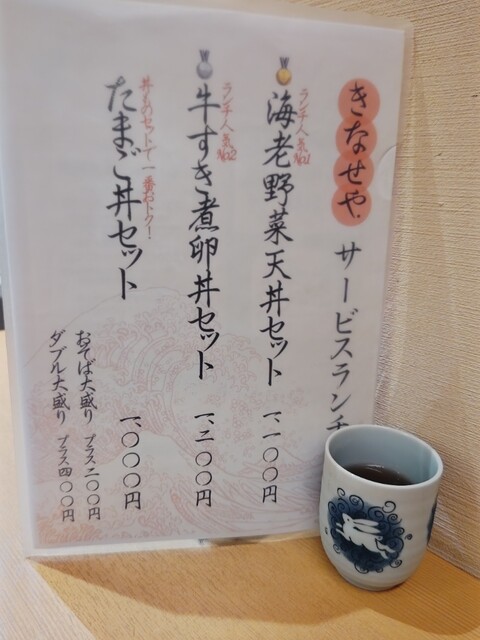 きなせや サービスランチ
ランチ人気No.1
海老野菜天丼セット 一、一〇〇円
ランチ人気No.2
牛すき煮卵丼セット 一、二〇〇円
丼ものセットで一番おトク！
たまご丼セット 一、〇〇〇円
おそば大盛り プラス二〇〇円
ダブル大盛り プラス四〇〇円